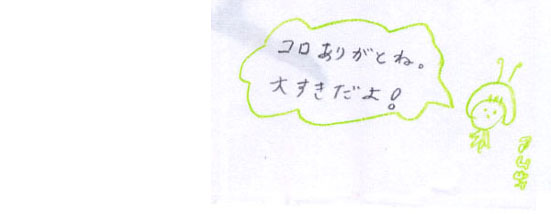 コロありがとね。
大すきだよ!